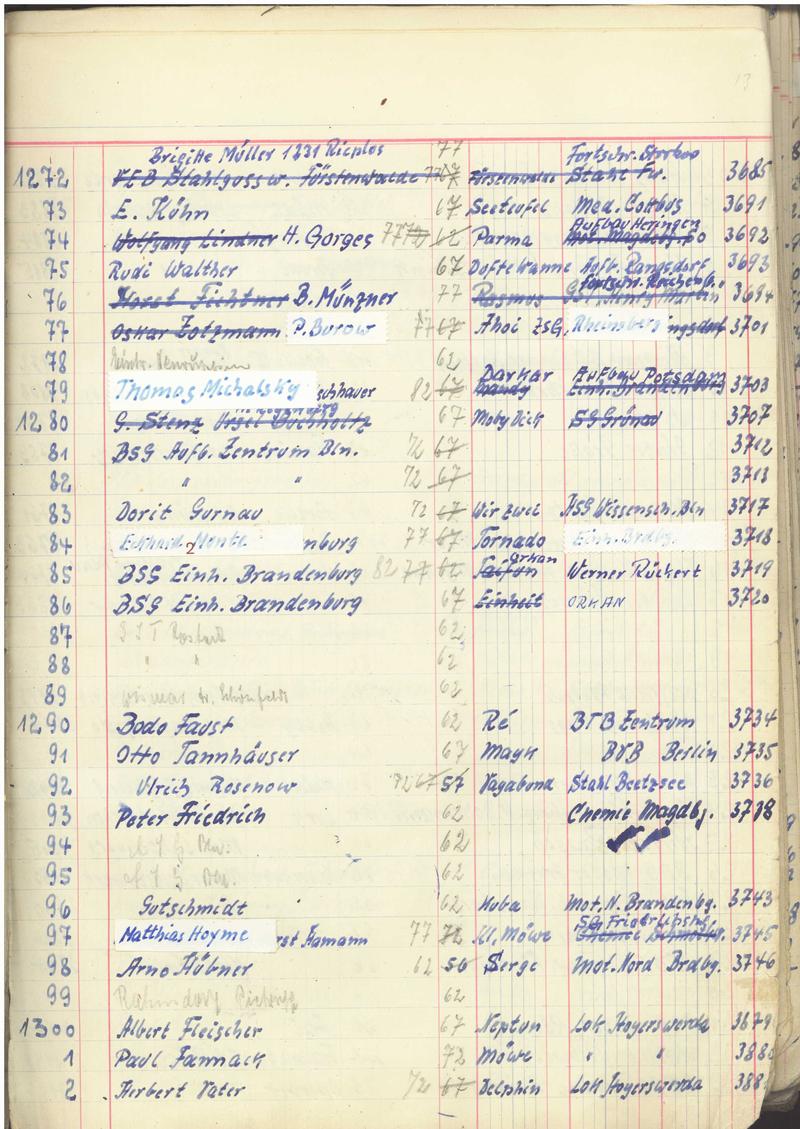 13
Brigitte Müller 1231 Rieplos 77 Fortschr. Storkow
1272 VEB Stahlgussw. Fürstenwalde Fürstenwalde Stahl Fw. 3685
73 E. Kühn 67 Seeteufel Med. Cottbus 3691
Aufbau Heringen
74 Wolfgang Lindner H. Gorges 77 72 62 Parma Mot. Magdeburg 3692
75 Rudi Walther 67 Aufb. Rangsdorf 3693
Fortschr. Reichenb.
76 Horst Fichtner B. Münzner 77 Kosmos 3694
77 Oskar Zotzmann P. Burow 77 67 Ahoi ZSG, Rheinsberg ngsdorf 3701
78 62
Darkar Aufbau Potsdam
79 Thomas Michalsky schhauer 82 67 Mandy Einh. Brandenburg 3703
1280 G. Stenz Ursel Buchholtz 67 Moby Dick SG Grünau 3707
81 BSG Aufb. Zentrum Bln. 72 67 3712
82 " " 72 67 3713
83 Dorit Gurnau 72 67 Wir zwei HSG Wissensch. Bln 3717
84 Eckhard Mente nburg 77 67 Tornado Einh. Brdbg. 3718
Orkan
85 BSG Einh. Brandenburg 82 77 62 Taifun Werner Rückert 3719
86 BSG Einh. Brandenburg 67 Einheit ORKAN 3720
87 Rostock 62
88 " " 62
89 Wismar Schönfeldt 62
1290 Bodo Faust 62 Ré BTB Zentrum 3734
91 Otto Tannhäuser 67 Mayk BVB Berlin 3735
92 Ulrich Rosenow 72 67 57 Vagabund Stahl Beetzsee 3736
93 Peter Friedrich 62 Chemie Magdbg. 3738
94 62
95 62
96 Gutschmidt 62 Kuba Mot. N. Brandenbg. 3743
97 Matthias Hoyme rst Hamann 77 72 Kl. Möwe 3745
98 Arno Hübner 62 56 Serge Mot. Nord Brdbg. 3746
99 Rahnsdorf 62
1300 Albert Fleischer 67 Neptun Lok Hoyerswerda 3679
1 Paul Hannack 72 Möwe " " 388
2 Herbert Vater 72 67 Delphin Lok Hoyerswerda 388